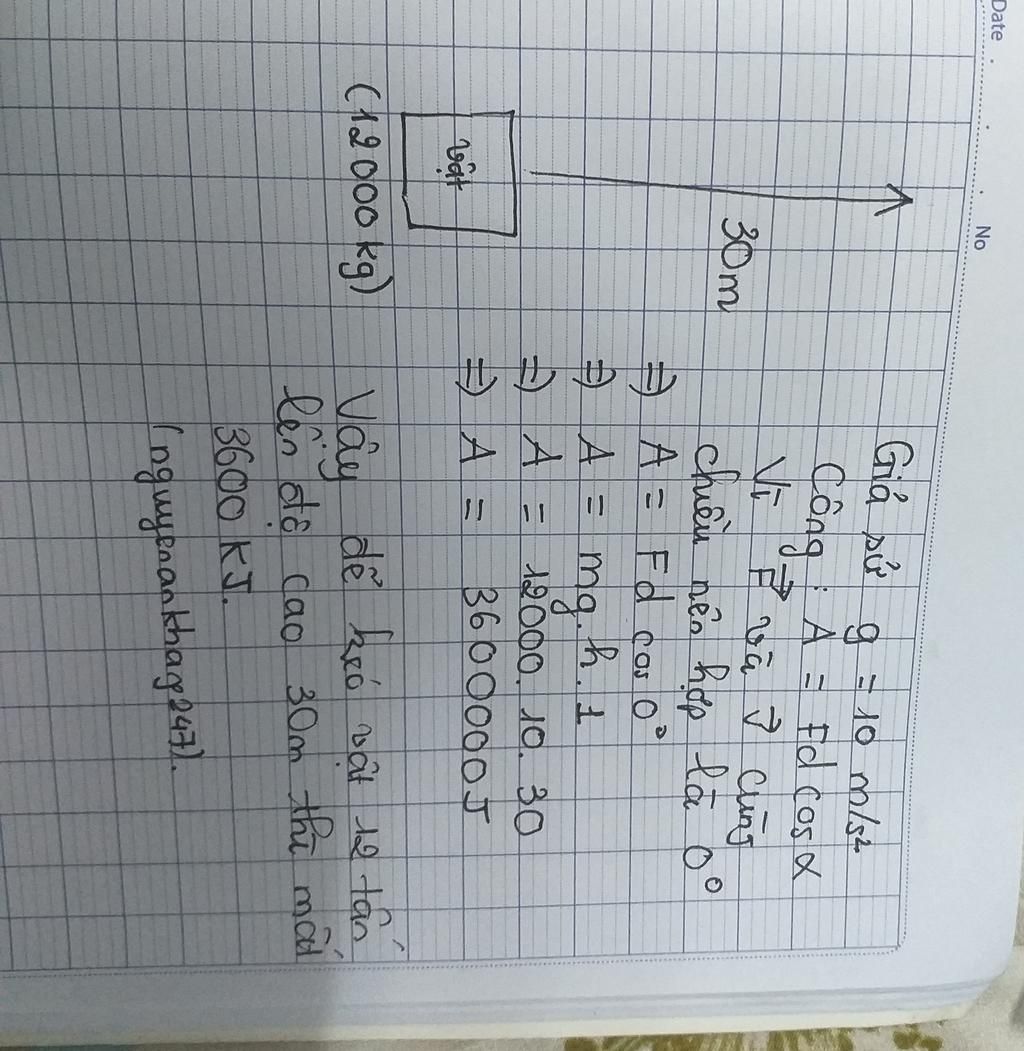 Date
No
30m
vật
(12000kg)
Giả sử g = 10 m/s²
Công : A = Fd cos α
Vì F⃗ và v⃗ cùng
chiều nên hợp là 0°
⇒ A = Fd cos 0°
⇒ A = mg.h.1
⇒ A = 12000.10.30
⇒ A = 3600000J
Vậy để kéo vật 12 tấn
lên độ cao 30m thì mất
3600 KJ.
(nguyenankhag247).